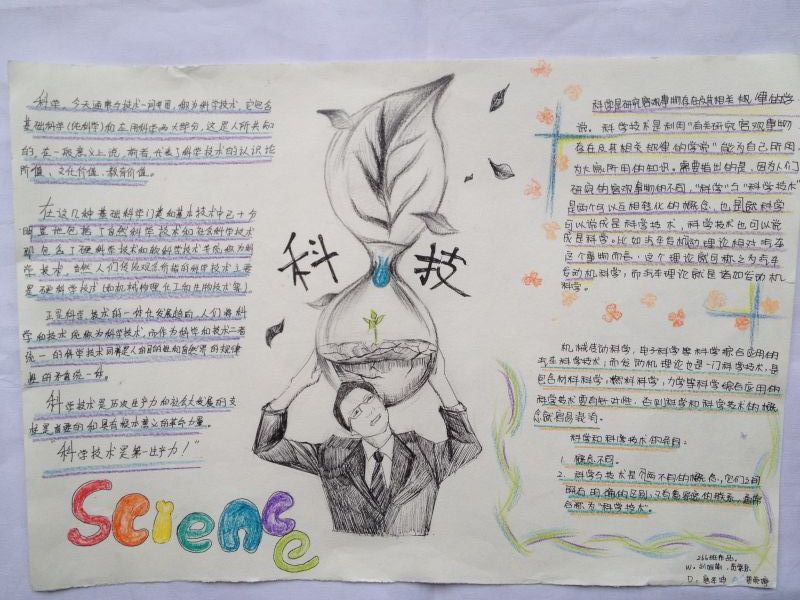 科学，今天通常与技术一词并用，称为科学技术，它包含
基础科学(纯科学)和应用科学两大部分，这是人所共知
的，在一般意义上说，前者代表了科学技术的认识论
价值、文化价值、教育价值。
在这几种基础科学门类和基本技术中已十分
明显地包括了自然科学技术和社会科学技术
即包含了硬科学技术和软科学技术并统称为科
学技术，当然人们传统观念所指的科学技术主要
是硬科学技术(如机械物理化工和生物技术等)
正是科学、技术的一体化发展趋向，人们将科
学和技术统称为科学技术，而作为科学和技术二者
统一的科学技术同样是人的目的性和自然界的规律
性的矛盾统一体。
科学技术是历次生产力和社会大发展的支
柱是重要的和具有根本意义的革命力量。
"科学技术是第一生产力！"
Science
科 技
科学是研究客观事物存在及其相关规律的学
说。科学技术是利用"有关研究客观事物
存在及其相关规律的学说"能为自己所用，
为大家所用的知识。需要指出的是，因为人们
研究的客观事物的不同，"科学"与"科学技术"
是两个可以互相转化的概念，也是即科学
可以说成是科学技术，科学技术也可以说
成是科学。比如汽车发动机理论相对汽车
这个事物而言，这个理论就可称之为汽车
发动机科学；而汽车理论就是诸如发动机
科学。
机械传动科学，电子科学等科学综合应用的
汽车科学技术；而发动机理论也是一门科学技术，是
包含材料科学，燃料科学，力学等科学综合应用的
科学技术要有针对性，否则科学和科学技术的概
念就容易混淆。
科学和科学技术的异同：
1. 概念不同。
2. 科学与技术是个两不同的概念，它们之间
既有明确的区别，又有着紧密的联系，通常
合称为"科学技术"。
266班作品。
W：
D：